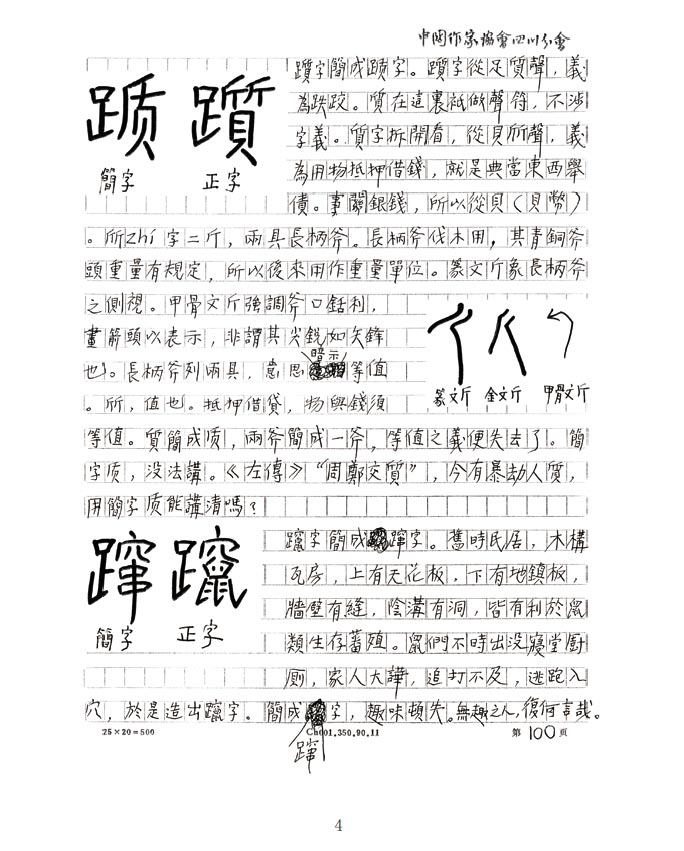 中國作家協會四川分會
踬 躓
簡字 正字
躓字簡成踬字。躓字從足質聲,義
為跌跤。質在這裏祇做聲符,不涉
字義。質字拆開看,從貝所聲,義
為用物抵押借錢,就是典當東西舉
債。事關銀錢,所以從貝(貝幣)
。所zhí字二斤,兩具長柄斧。長柄斧伐木用,其青銅斧
頭重量有規定,所以後來用作重量單位。篆文斤象長柄斧
之側視。甲骨文斤強調斧口銛利,
畫箭頭以表示,非謂其尖銳如矢鋒
也。長柄斧列兩具,意思暗示等值
。所,值也。抵押借貸,物與錢須
篆文斤 金文斤 甲骨文斤
等值。質簡成质,兩斧簡成一斧,等值之義便失去了。簡
字质,没法講。《左傳》“周鄭交質”,今有暴劫人質,
用簡字质能講清嗎?
蹿 躥
簡字 正字
躥字簡成蹿字。舊時民居,木構
瓦房,上有天花板,下有地鎮板,
牆壁有縫,陰溝有洞,皆有利於鼠
類生存蕃殖。鼠們不時出没寢堂厨
厠,家人大譁,追打不及,逃跑入
穴,於是造出躥字。簡成蹿字,趣味頓失。無趣之人,復何言哉。
25×20=500 Ch001.350.90.11 第100頁
4